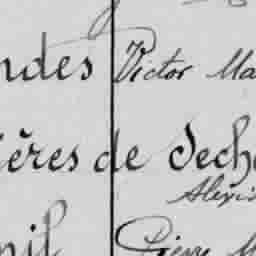 ndes Victor Ma
ières de Sech
Alexis
nil Pierre M